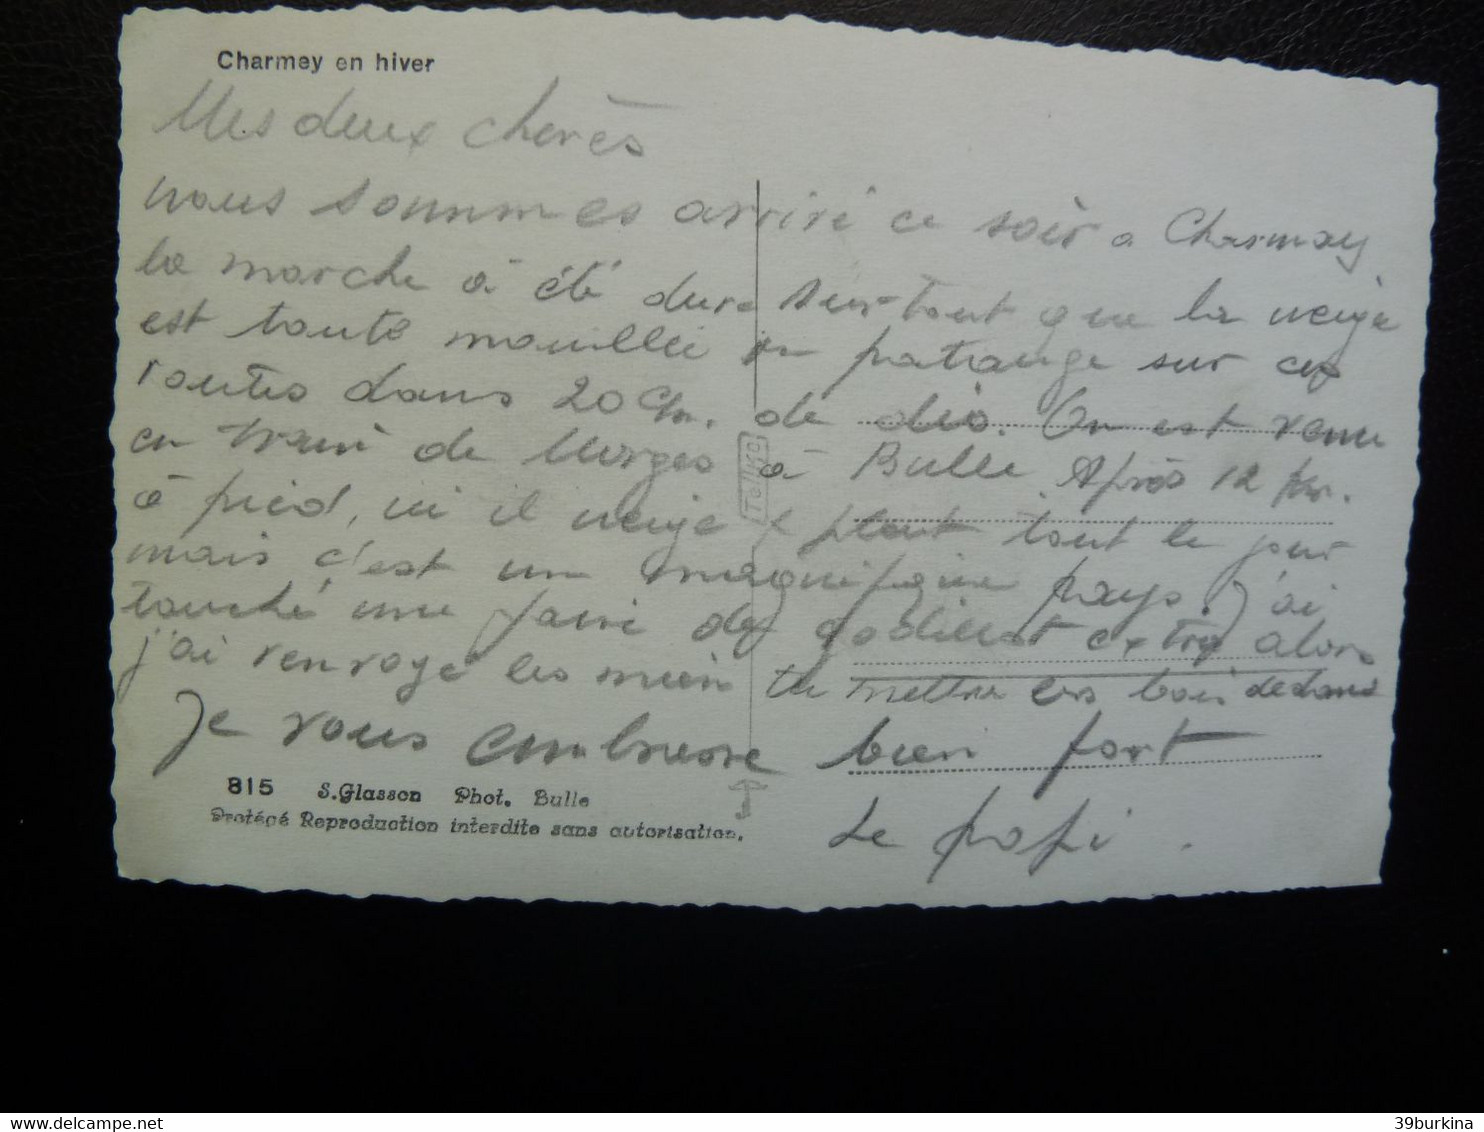 Charmey en hiver
Mes deux cherès
nous sommmes arrivé ce soir a Charmay
la marche à été dure surtout que la neige
est toute mouillée on patauge sur ces
routes dans 20 cm. de On est venu
en train de Morges à Bulle. Après 12 km.
à pied, ici il neige & pleut tout le jour
mais c'est un magnifique pays. J'ai
touché une paire de godillot extra alors
j'ai renvoyé les mien tu mettra les bois dedans
Je vous embrasse bien fort
Le papi.
Tellko
815 S.Glasson Phot. Bulle
Protégé Reproduction interdite sans autorisation.
39burkina
delcampe.net